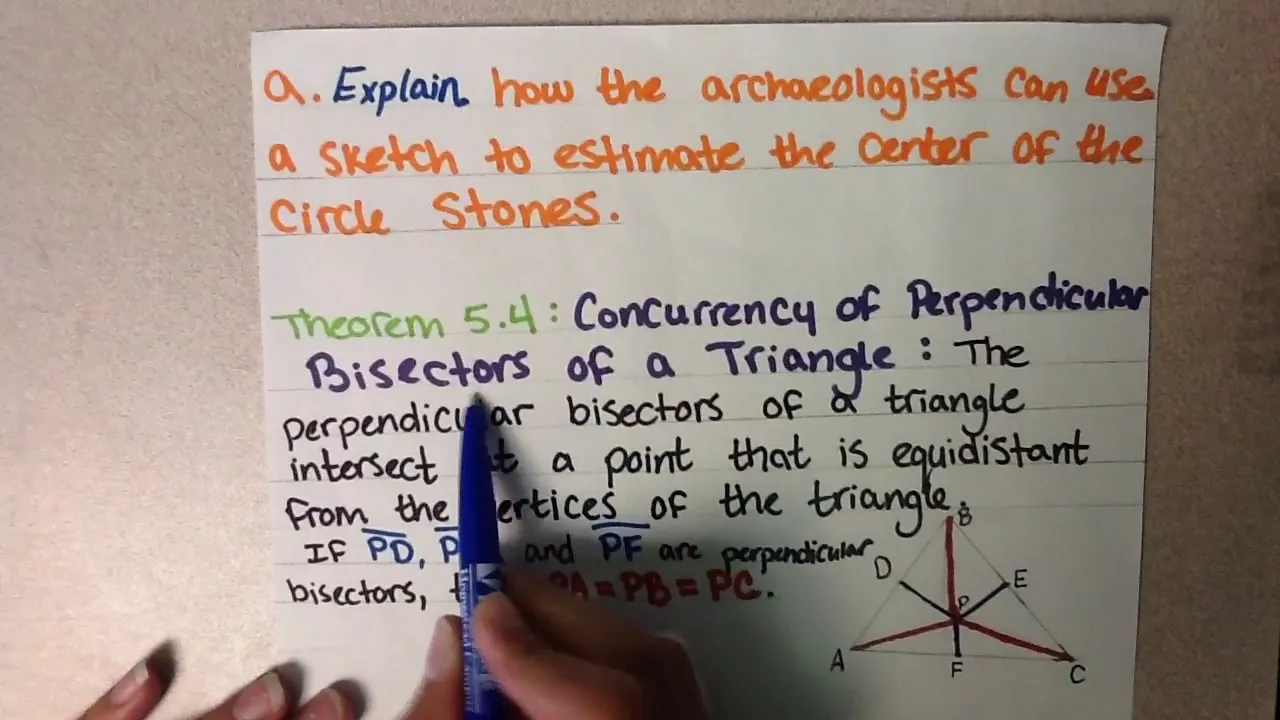 a. Explain how the archaeologists can use
a sketch to estimate the center of the
Circle Stones.
Theorem 5.4: Concurrency of Perpendicular
Bisectors of a Triangle: The
perpendicular bisectors of a triangle
intersect a point that is equidistant
from the of the triangle.
If PD, and PF are perpendicular
bisectors, PA = PB = PC.
B
D
E
P
A
F
C